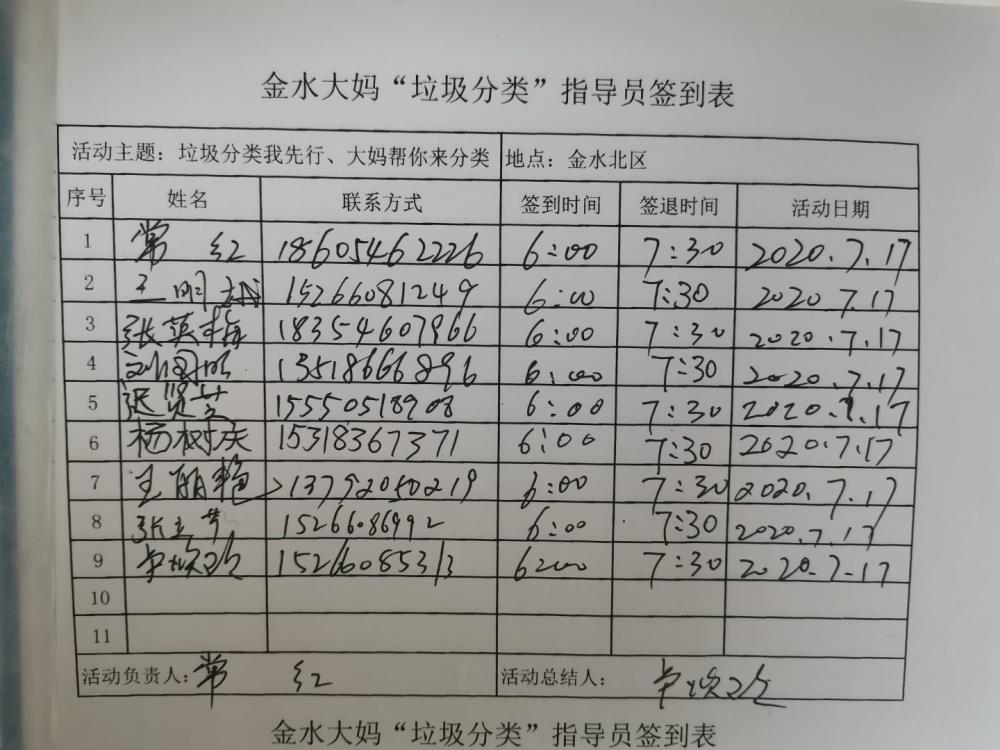 金水大妈“垃圾分类”指导员签到表
活动主题：垃圾分类我先行、大妈帮你来分类 地点：金水北区
序号 姓名 联系方式 签到时间 签退时间 活动日期
1 常 红 18605462226 6:00 7:30 2020.7.17
2 王明 15266081249 6:00 7:30 2020.7.17
3 张英梅 18354607966 6:00 7:30 2020.7.17
4 刘国明 13518666896 6:00 7:30 2020.7.17
5 贤 15550518908 6:00 7:30 2020.7.17
6 杨树庆 15318367371 6:00 7:30 2020.7.17
7 王丽艳 13792050219 6:00 7:30 2020.7.17
8 张立芳 15266086992 6:00 7:30 2020.7.17
9 15266085313 6:00 7:30 2020.7.17
10
11
活动负责人：常 红 活动总结人：
金水大妈“垃圾分类”指导员签到表